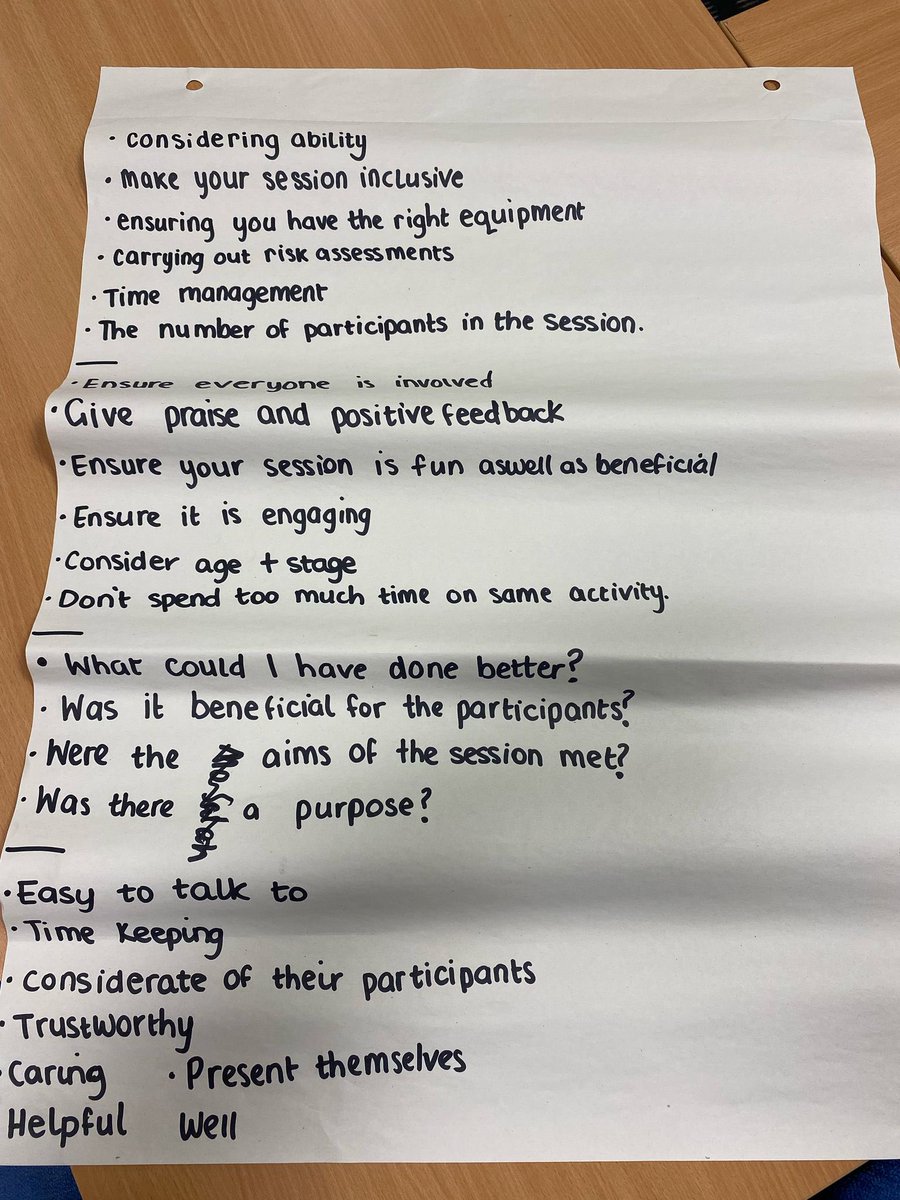 · Considering ability
· make your session inclusive
· ensuring you have the right equipment
· carrying out risk assessments
· Time management
· The number of participants in the session.
· Ensure everyone is involved
· Give praise and positive feedback
· Ensure your session is fun aswell as beneficial
· Ensure it is engaging
· Consider age + stage
· Don't spend too much time on same activity.
· What could I have done better?
· Was it beneficial for the participants?
· Were the aims of the session met?
· Was there a purpose?
· Easy to talk to
· Time Keeping
· Considerate of their participants
· Trustworthy
· Caring · Present themselves
Helpful Well